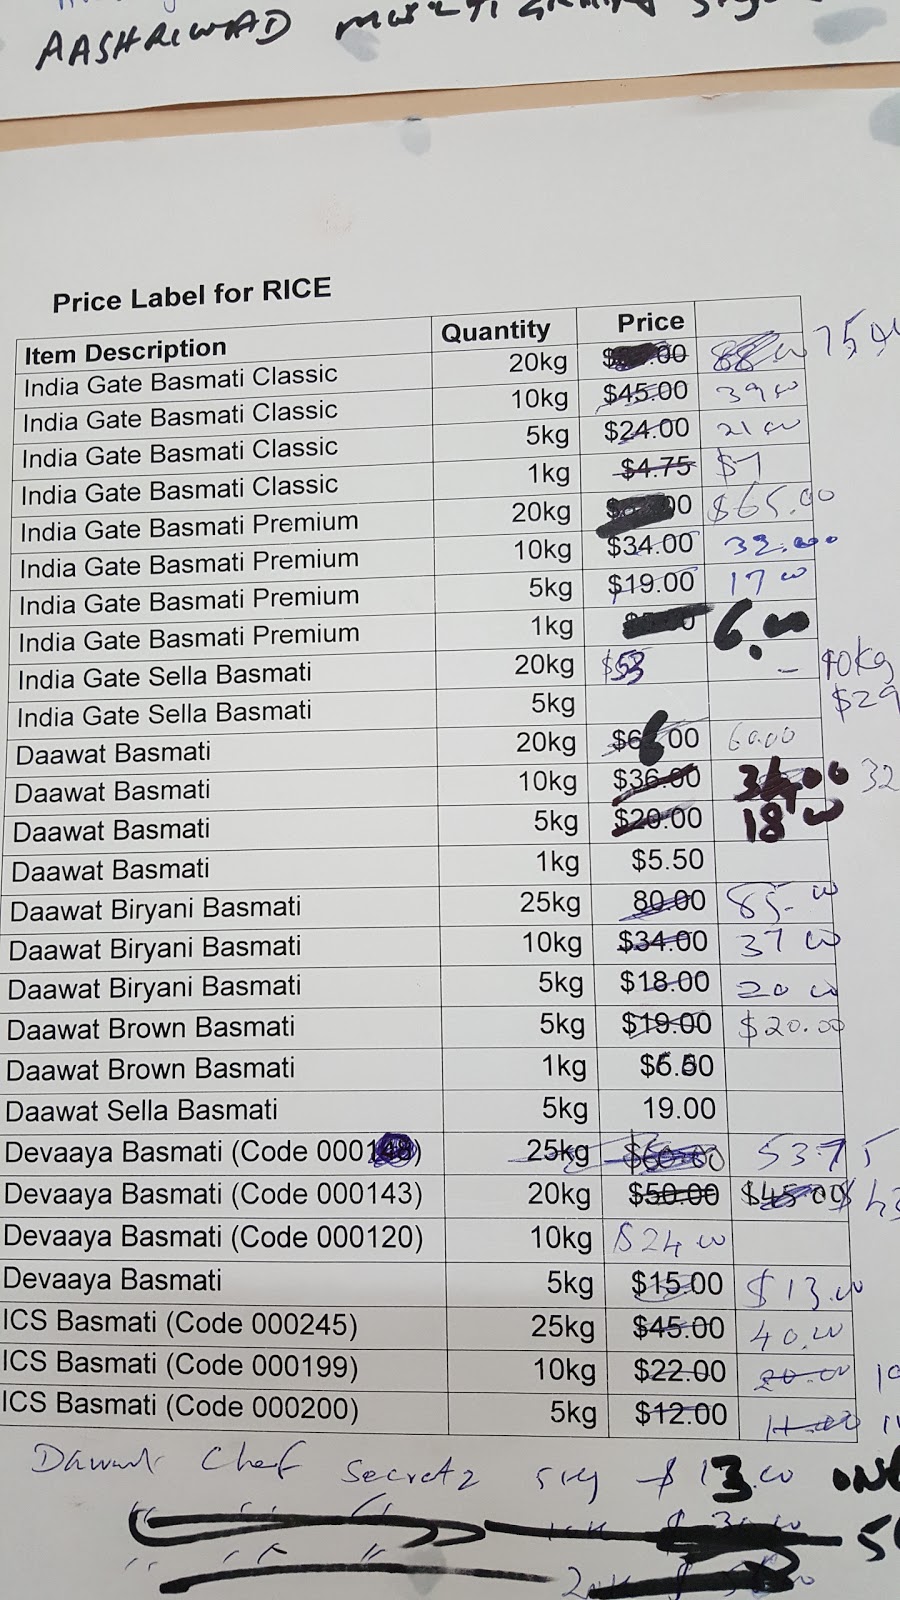 AASHRIWAD
Price Label for RICE
Item Description Quantity Price
India Gate Basmati Classic 20kg 88 00
India Gate Basmati Classic 10kg $45.00 39 00
India Gate Basmati Classic 5kg $24.00 21 00
India Gate Basmati Classic 1kg $4.75 $7
India Gate Basmati Premium 20kg $65.00
India Gate Basmati Premium 10kg $34.00
India Gate Basmati Premium 5kg $19.00 17 00
India Gate Basmati Premium 1kg 6.00
India Gate Sella Basmati 20kg $53 - 10kg
India Gate Sella Basmati 5kg $29
Daawat Basmati 20kg $66 00 60.00
Daawat Basmati 10kg $36.00 32
Daawat Basmati 5kg $20.00 18 00
Daawat Basmati 1kg $5.50
Daawat Biryani Basmati 25kg 80.00 85-00
Daawat Biryani Basmati 10kg $34.00 37 00
Daawat Biryani Basmati 5kg $18.00 20 00
Daawat Brown Basmati 5kg $19.00 $20.00
Daawat Brown Basmati 1kg
Daawat Sella Basmati 5kg 19.00
Devaaya Basmati (Code 25kg $60.00 53.75
Devaaya Basmati (Code 000143) 20kg $50.00 $45 00
Devaaya Basmati (Code 000120) 10kg $24 00
Devaaya Basmati 5kg $15.00 $13.00
ICS Basmati (Code 000245) 25kg $45.00 40.00
ICS Basmati (Code 000199) 10kg $22.00 20.00
ICS Basmati (Code 000200) 5kg $12.00 11.00
Chef 5kg $13.00